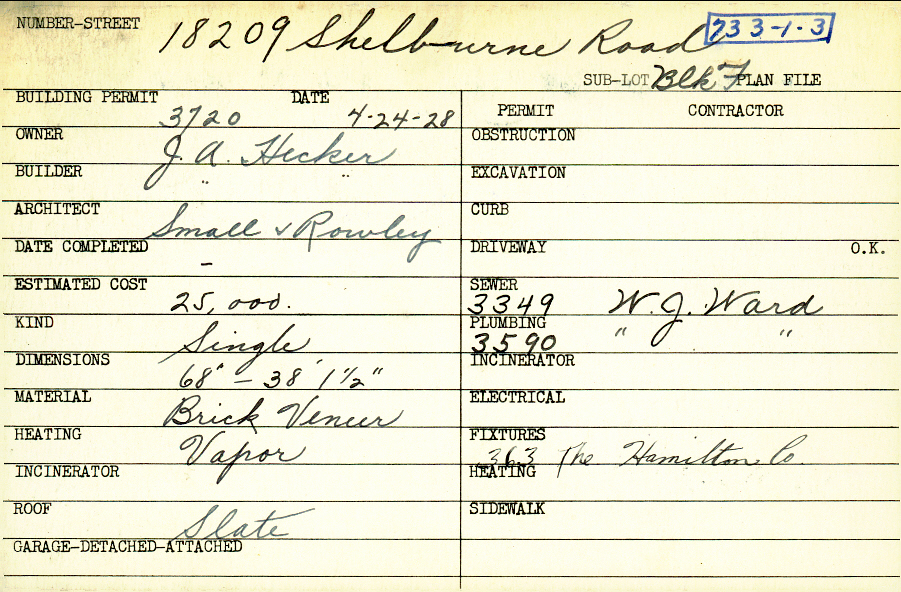 NUMBER-STREET 18209 Shelburne Road 733-1-3
SUB-LOT Blk F PLAN FILE
BUILDING PERMIT 3720 DATE 4-24-28
PERMIT CONTRACTOR
OWNER J. A. Hecker
OBSTRUCTION
BUILDER " "
EXCAVATION
ARCHITECT Small & Rowley
CURB
DATE COMPLETED -
DRIVEWAY O.K.
ESTIMATED COST 25,000.
SEWER 3349 W. J. Ward
KIND Single
PLUMBING 3590 " "
DIMENSIONS 68' - 38' 1 1/2"
INCINERATOR
MATERIAL Brick Veneer
ELECTRICAL
HEATING Vapor
FIXTURES 363 The Hamilton Co.
INCINERATOR
HEATING
ROOF Slate
SIDEWALK
GARAGE-DETACHED-ATTACHED